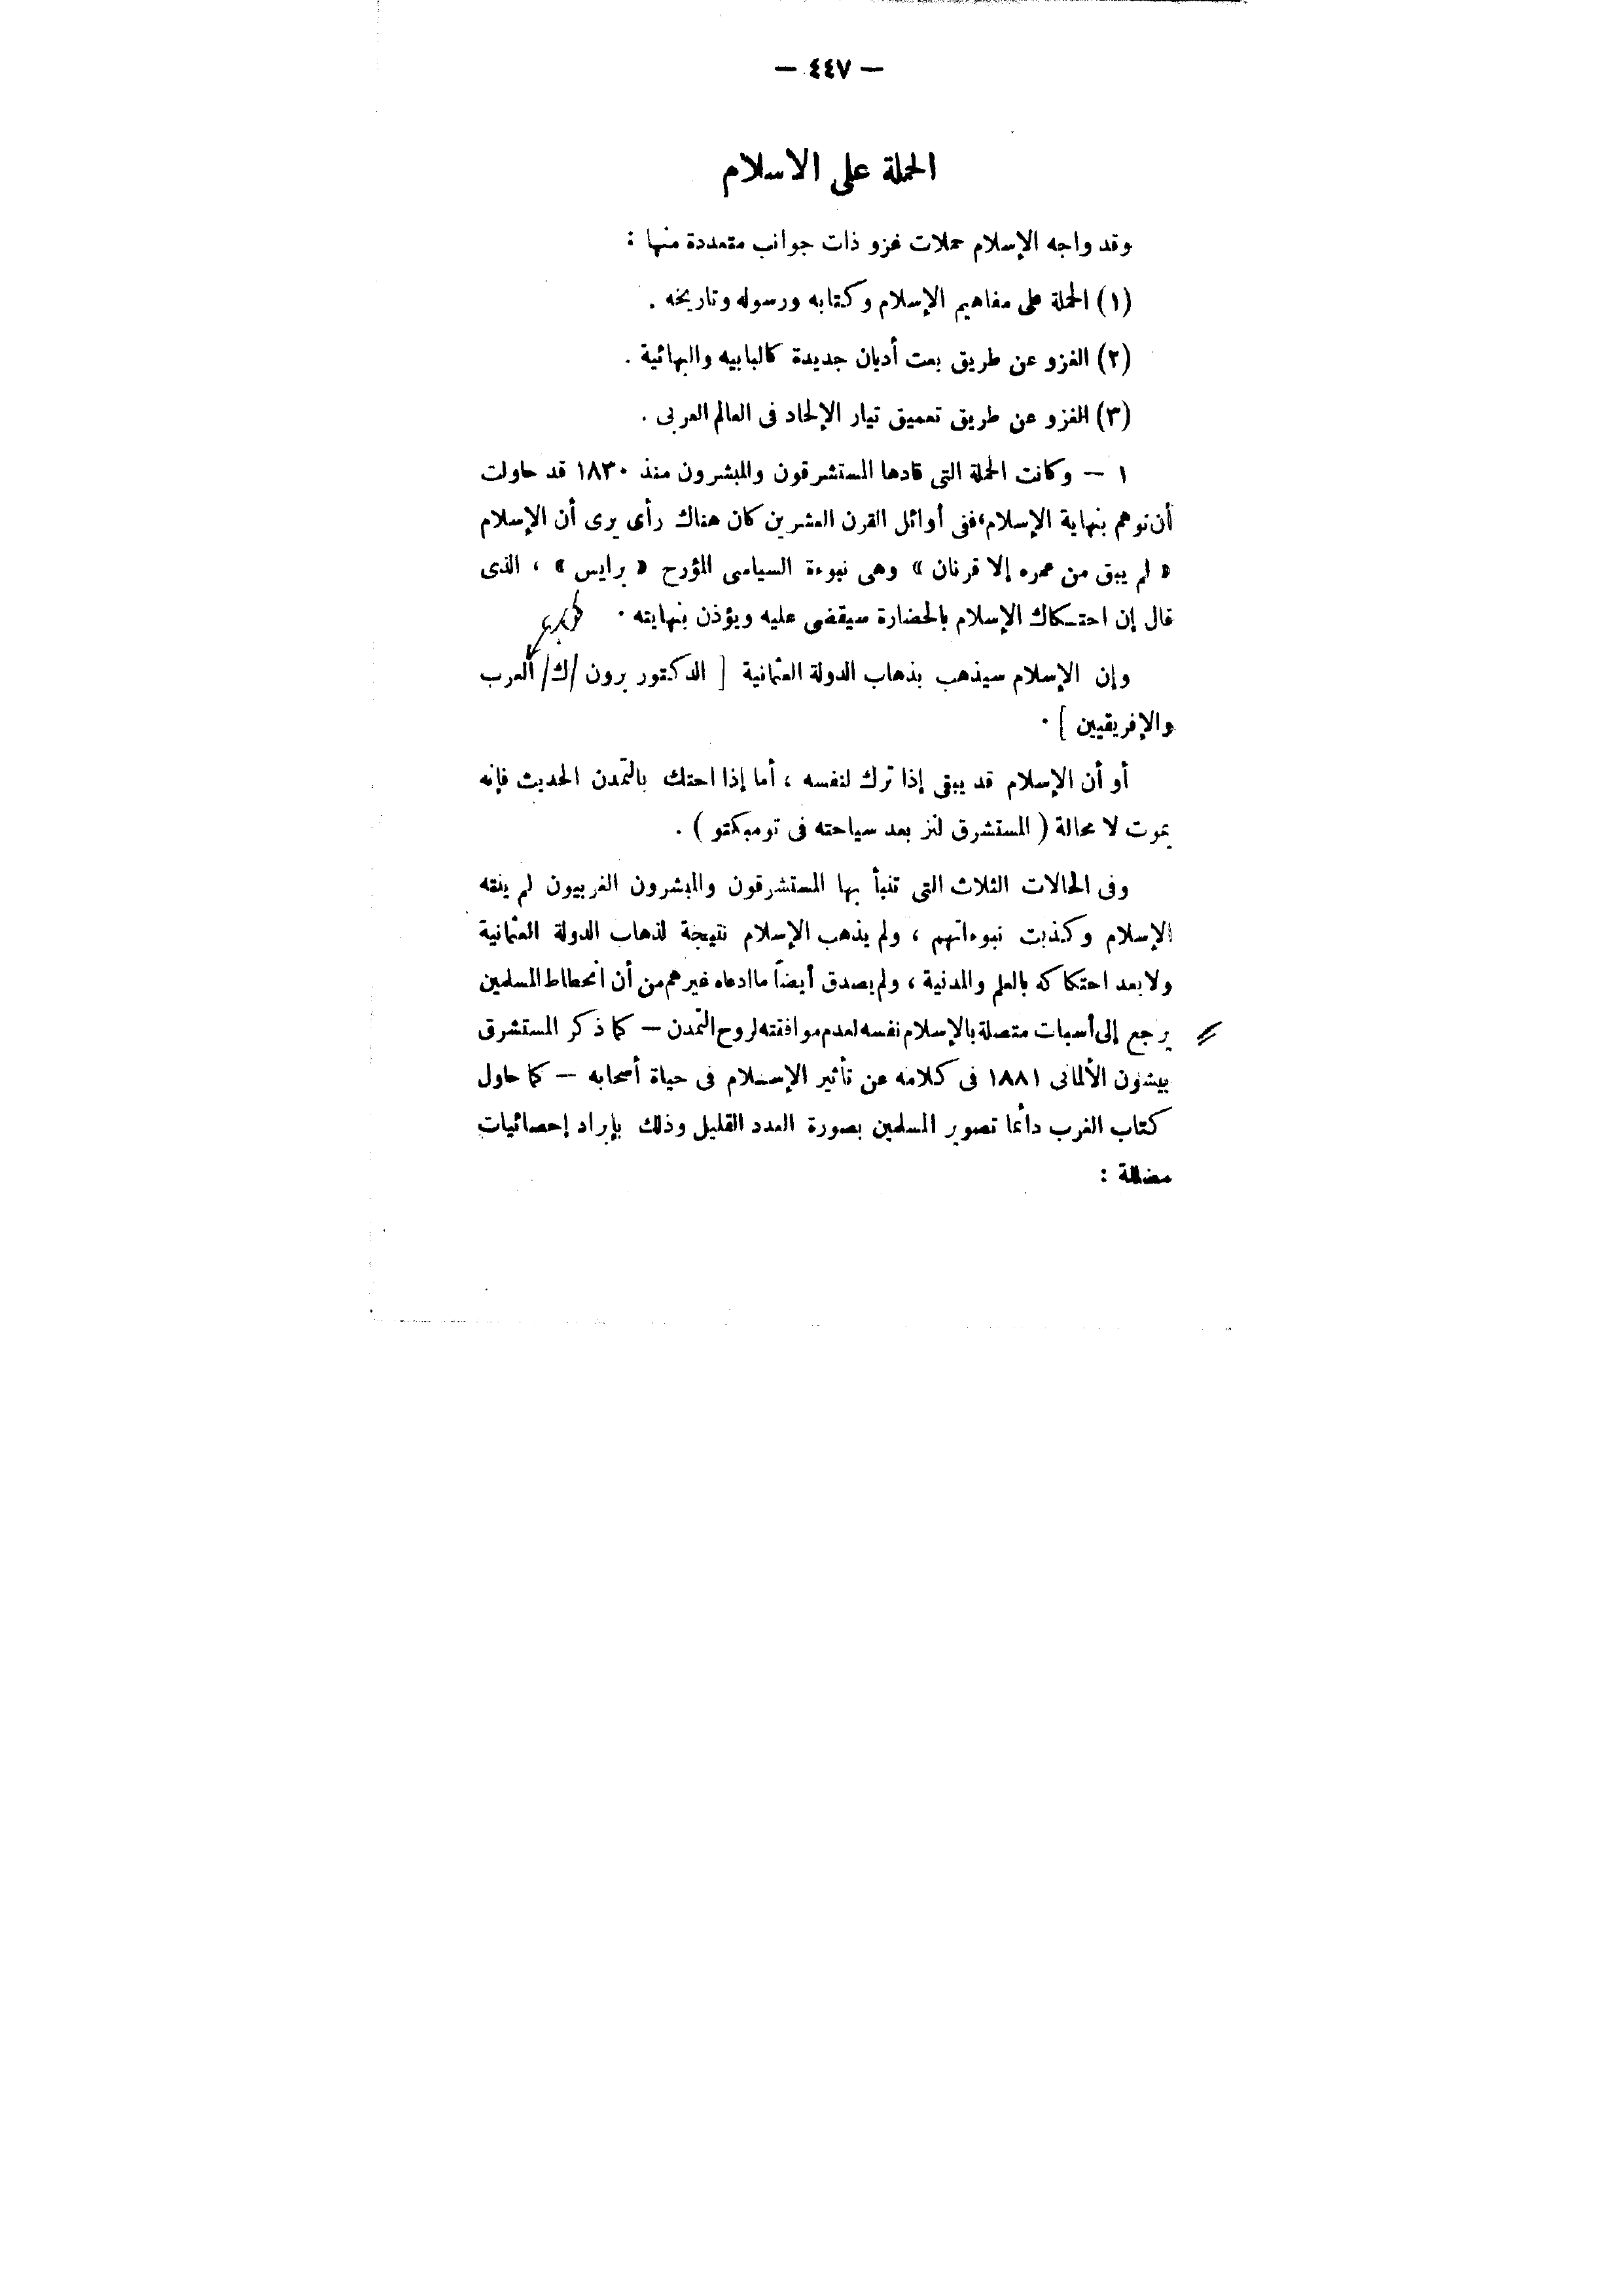 — ٤٤٧ —
الحملة على الاسلام
وقد واجه الإسلام حملات غزو ذات جوانب متعددة منها :
(١) الحملة على مفاهيم الإسلام وكتابه ورسوله وتاريخه .
(٢) الغزو عن طريق بعت أديان جديدة كالبابيه والبهائية .
(٣) الغزو عن طريق تعميق تيار الإلحاد فى العالم العربى .
١ — وكانت الحملة التى قادها المستشرقون والمبشرون منذ ١٨٣٠ قد حاولت
أن توهم بنهاية الإسلام، ففى أوائل القرن العشرين كان هناك رأى يرى أن الإسلام
« لم يبق من عمره إلا قرنان » وهى نبوءة السياسى المؤرح « برايس » ، الذى
قال إن احتكاك الإسلام بالحضارة سيقضى عليه ويؤذن بنهايته .
وإن الإسلام سيذهب بذهاب الدولة العثمانية [ الدكتور برون /ك/ العرب
والإفريقيين ] .
أو أن الإسلام قد يبقى إذا ترك لنفسه ، أما إذا احتك بالتمدن الحديث فإنه
يموت لا محالة ( المستشرق لنز بعد سياحته فى تومبكتو ) .
وفى الحالات الثلاث التى تنبأ بها المستشرقون والمبشرون الغربيون لم ينته
الإسلام وكذبت نبوءاتهم ، ولم يذهب الإسلام نتيجة لذهاب الدولة العثمانية
ولا بعد احتكاكه بالعلم والمدنية ، ولم يصدق أيضاً ما ادعاه غيرهم من أن انحطاط المسلمين
يرجع إلى أسبات متصلة بالإسلام نفسه لعدم موافقته لروح التمدن — كما ذكر المستشرق
بيشون الألمانى ١٨٨١ فى كلامه عن تأثير الإسلام فى حياة أصحابه — كما حاول
كتاب الغرب دائما تصوير المسلمين بصورة العدد القليل وذلك بإيراد إحصائيات
مضللة :